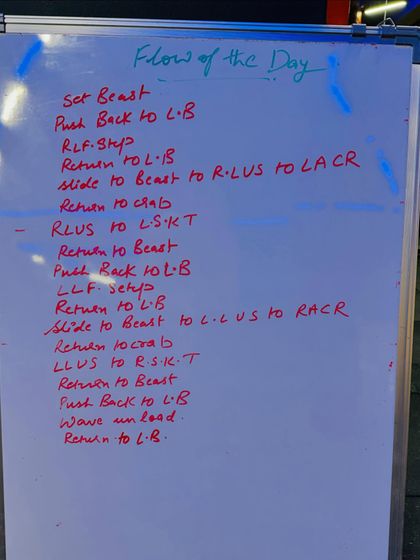 Flow of the Day
Set Beast
Push Back to L.B
RLF. Step
Return to L.B
slide to Beast to R.LUS to LACR
Return to crab
RLUS to L.S.K.T
Return to Beast
Push Back to L.B
LLF. Setup
Return to L.B
Slide to Beast to L.LUS to RACR
Return to crab
LLUS to R.S.K.T
Return to Beast
Push Back to L.B
Wave unload.
Return to L.B.